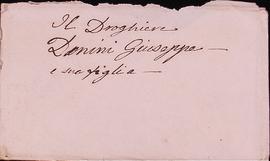 Il Droghiere
Donini Giuseppa
e sua figlia —